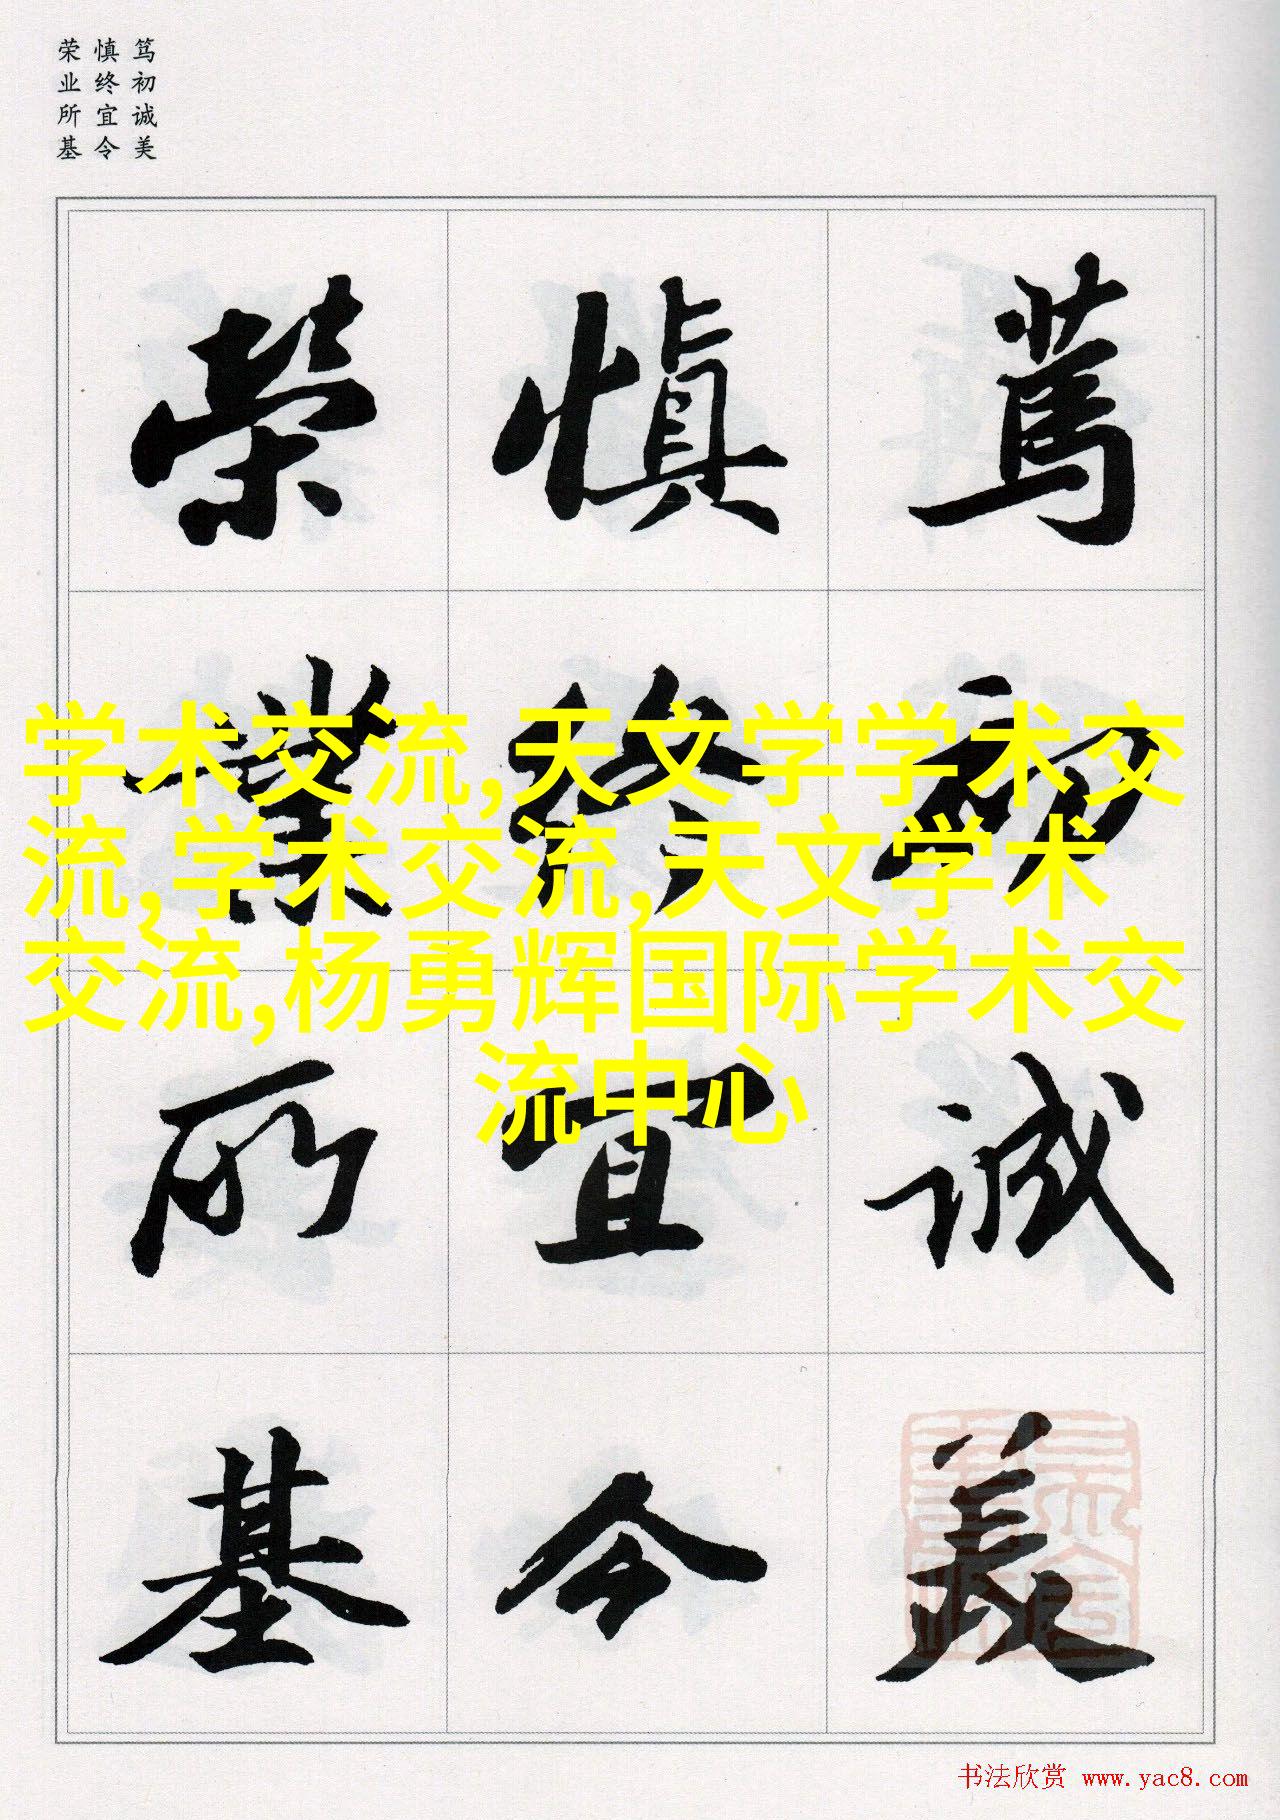 笃初诚美
慎终宜令
荣业所基
篤初誠美
慎終宜令
榮業所基
学术交流,天文学学术交
流,学术交流,天文学术
交流,杨勇辉国际学术交
流中心
书法欣赏 www.yac8.com